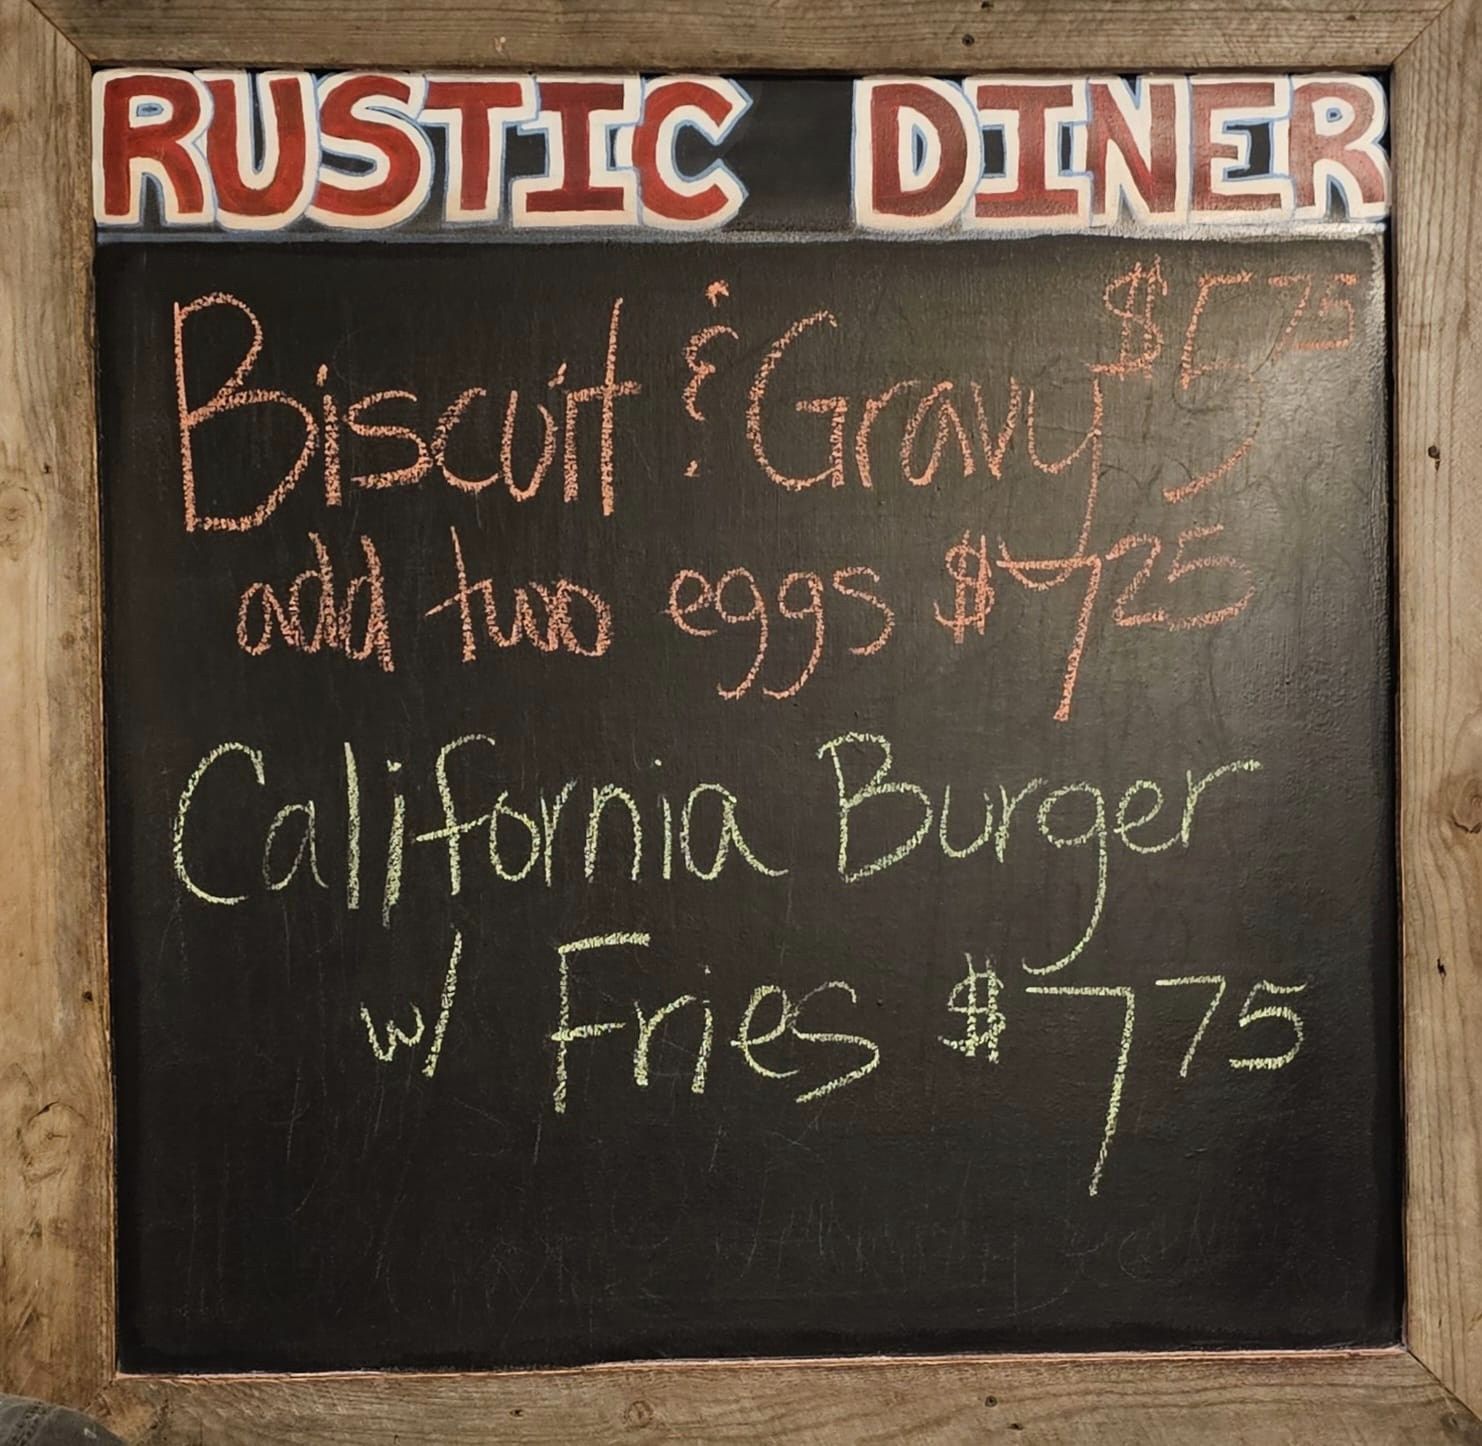 RUSTIC DINER
Biscuit & Gravy $5 75
add two eggs $7 25
California Burger
w/ Fries $7 75